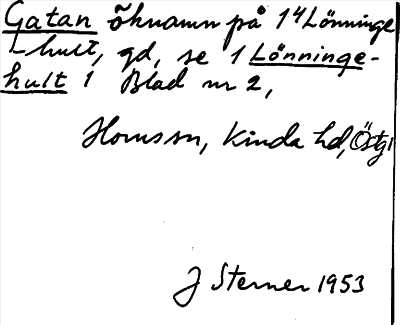 Gatan öknamn på 1⁴ Lönninge
-hult, gd, se 1 Lönninge-
hult 1 Blad nr 2,
Horns sn, Kinda hd, Östg
J Sterner 1953